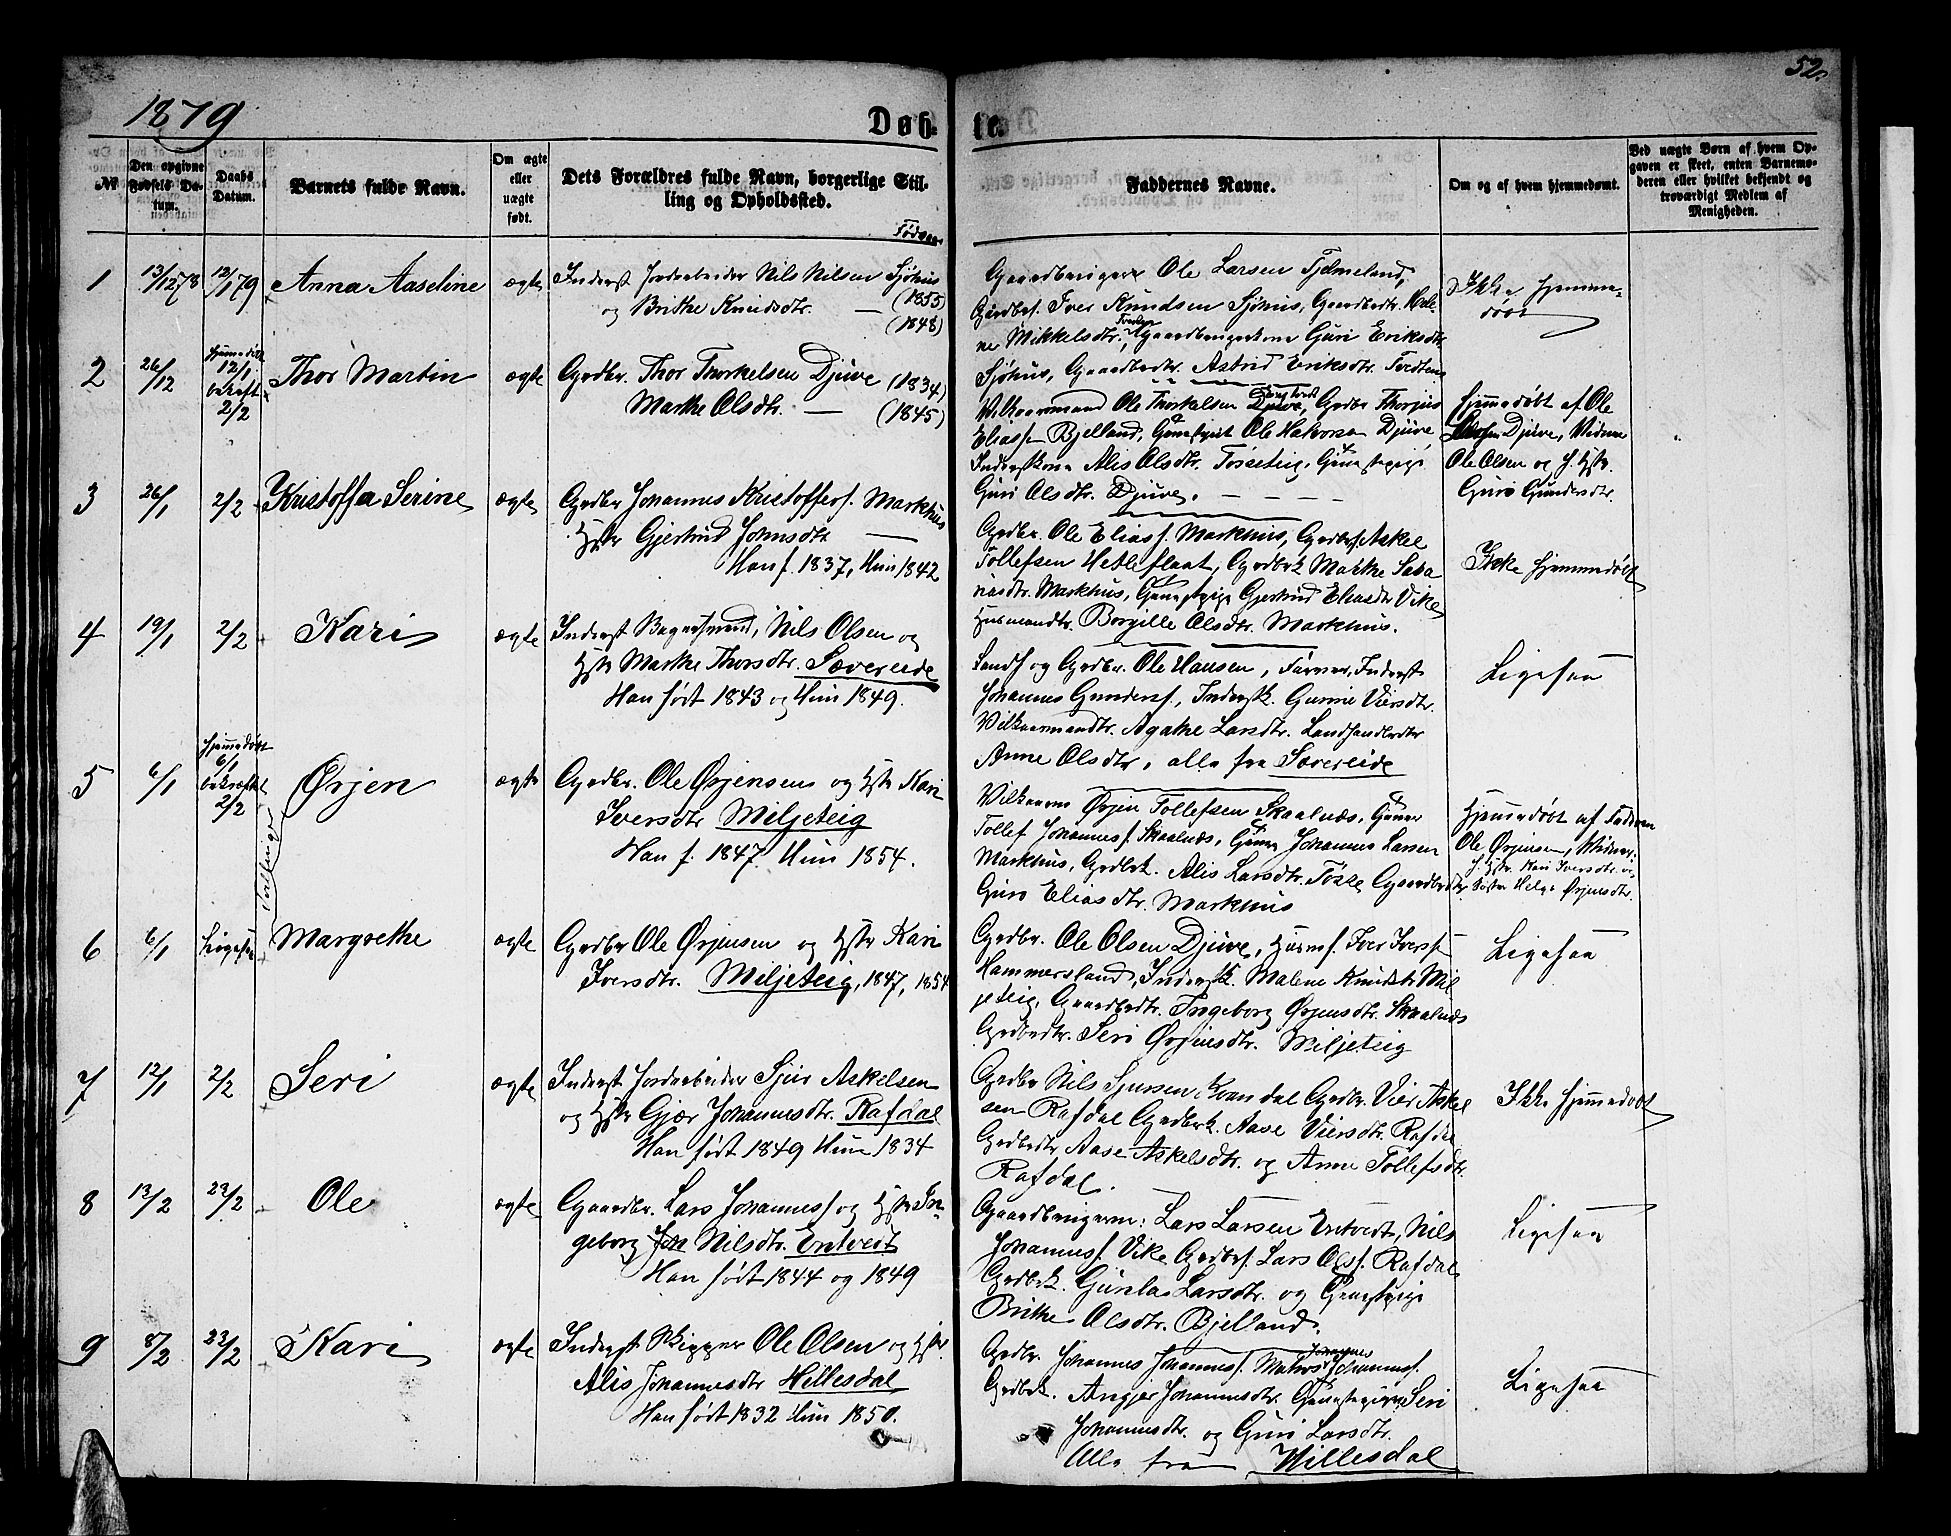 52.
1879
Døb- te.
№
Den opgivne Fødsels Datum.
Daabs Datum.
Barnets fulde Navn.
Om ægte eller uægte født.
Dets Forældres fulde Navn, borgerlige Stilling og Opholdssted.
Fødsaar
Faddernes Navne.
Om og af hvem hjemmedøbt.
Ved uægte Børn af hvem Opgaven er skeet, enten Barnemoderen eller hvilket bekjendt og troværdigt Medlem af Menigheden.
1
13/12 78
12/1 79
Anna Aaseline
ægte
Inderst Jordarbeider Nils Nilsen Sjøhus (1855)
og Brithe Knudsdtr. — (1848)
Gaardbruger Ole Larsen Tjelmeland,
Gardbr. Iver Knudsen Sjøhus, Gaardbdtr.
Mikkelsdtr. Gaardbrugerkone Guri Eriksdtr
Sjøhus, Gaardbdtr. Astrid Eriksdtr. Tvedten
Ikke hjemmedøbt
2
26/12
hjemmedøbt 12/1 bekræft 2/2
Thor Martin
ægte
Grdbr. Thor Thorkelsen Djuve (1834)
Marthe Olsdtr. — (1845)
Vilkaarsmand Ole Thorkelsen Djuve, Grdbr. Thorjus
Eliass. Bjelland, Ole Halvorsen Djuve,
Inderstkone Alis Olsdtr. Tosseteig,
Guri Olsdtr. Djuve.
hjemmedøbt af Ole
Djuve, Vidner
Ole Olsen og
Guro Gundersdtr.
3
26/1
2/2
Kristoffa Serine
ægte
Grdbr Johannes Kristoffers. Markhus
Hstr Gjertrud Johnsdtr —
Han f. 1837, Hun 1842
Grdbr. Ole Eliass. Markhus, Grdbrs. Askel
Tollefsen Hetleflaat, Grdbrk Marthe
Markhus, Gjertrud Eliasdtr Vike
Husmandtr. Borgille Olsdtr. Markhus.
Ikke hjemmedøbt
4
19/1
2/2
Kari
ægte
Inderst Bagersvend, Nils Olsen og
Hstr Marthe Thorsdtr. Sævereide
Han født 1843 og Hun 1849.
Landh og Grdbr. Ole Hansen, Inderst
Johannes Gunders., Inderstk. Gunne Viersdtr.
Vilkaarsmandtr. Agathe Larsdtr. Landhandlerdtr
Anne Olsdtr, alle fra Sævereide
Ligesaa
5
6/1
hjemmedøbt 6/1 bekræftet 2/2
Tvillinger
Ørjen
ægte
Grdbr. Ole Ørjensens og Hstr Kari
Iversdtr Miljeteig
Han f. 1847. Hun 1854.
Vilkaarsm Ørjin Tollefsen Skaalnæs,
Tollef Johanness. Skaalnæs, Johannes Larsen
Markhus, Grdbrk. Alis Larsdtr. Tosse, Gaardbdtr.
Guro Eliasdtr. Markhus
Hjemmedøbt af Faderen
Ole Ørjensen, Vidner:
Hstr. Kari Iversdtr. og
Helga Ørjensdtr.
6
6/1
Ligesaa
Margrethe
ægte
Grdbr Ole Ørjensen og Hstr Kari
Iversdtr. Miljeteig, 1847, 1854
Grdbr. Ole Olsen Djuve, Husms. Iver Ivers.
Hammersland, Inderstk. Malene Knudsdtr Mil-
jeteig, Gaardbdtr. Ingeborg Ørjensdtr. Skaalnæs
Grdbrdtr. Seri Ørjensdtr. Miljeteig
Ligesaa
7
12/1
2/2
Seri
ægte
Inderst Jordarbeider Sjur Askelsen
og Hstr Gjør Johannesdtr. Rafdal
Han født 1849 Hun 1834
Grdbr Nils Sjursen, Kvandal Grdbr. Vier Askel
sen Rafdal Grdbrk. Aase Viersdtr. Rafdal
Grdbdtr Aase Askelsdtr. og Anne Tollefsdtr.
Rafdal.
Ikke hjemmedøbt
8
13/2
23/2
Ole
ægte
Gaardbr. Lars Johanness og Hstr In-
geborg Nilsdtr. Entvedt
Han født 1844 og 1849
Gaardbrugerne: Lars Larsen Entvedt, Nils
Johanness. Vike Grdbrs. Lars Olss. Rafdal
Grdbrk. Gunla Larsdtr. og
Brithe Olsdtr. Bjelland.
Ligesaa
9
8/2
23/2
Kari
ægte
Inderst Skipper Ole Olsen og Hstr
Alis Johannesdtr Hillesdal
Han født 1832 Hun 1850.
Grdbr. Johannes Johanness. Matros Johannes Johanness.
Grdbrk. Angjer Johannesdtr. Seri
Johannesdtr. og Guri Larsdtr.
Alle fra Hillesdal
Ligesaa